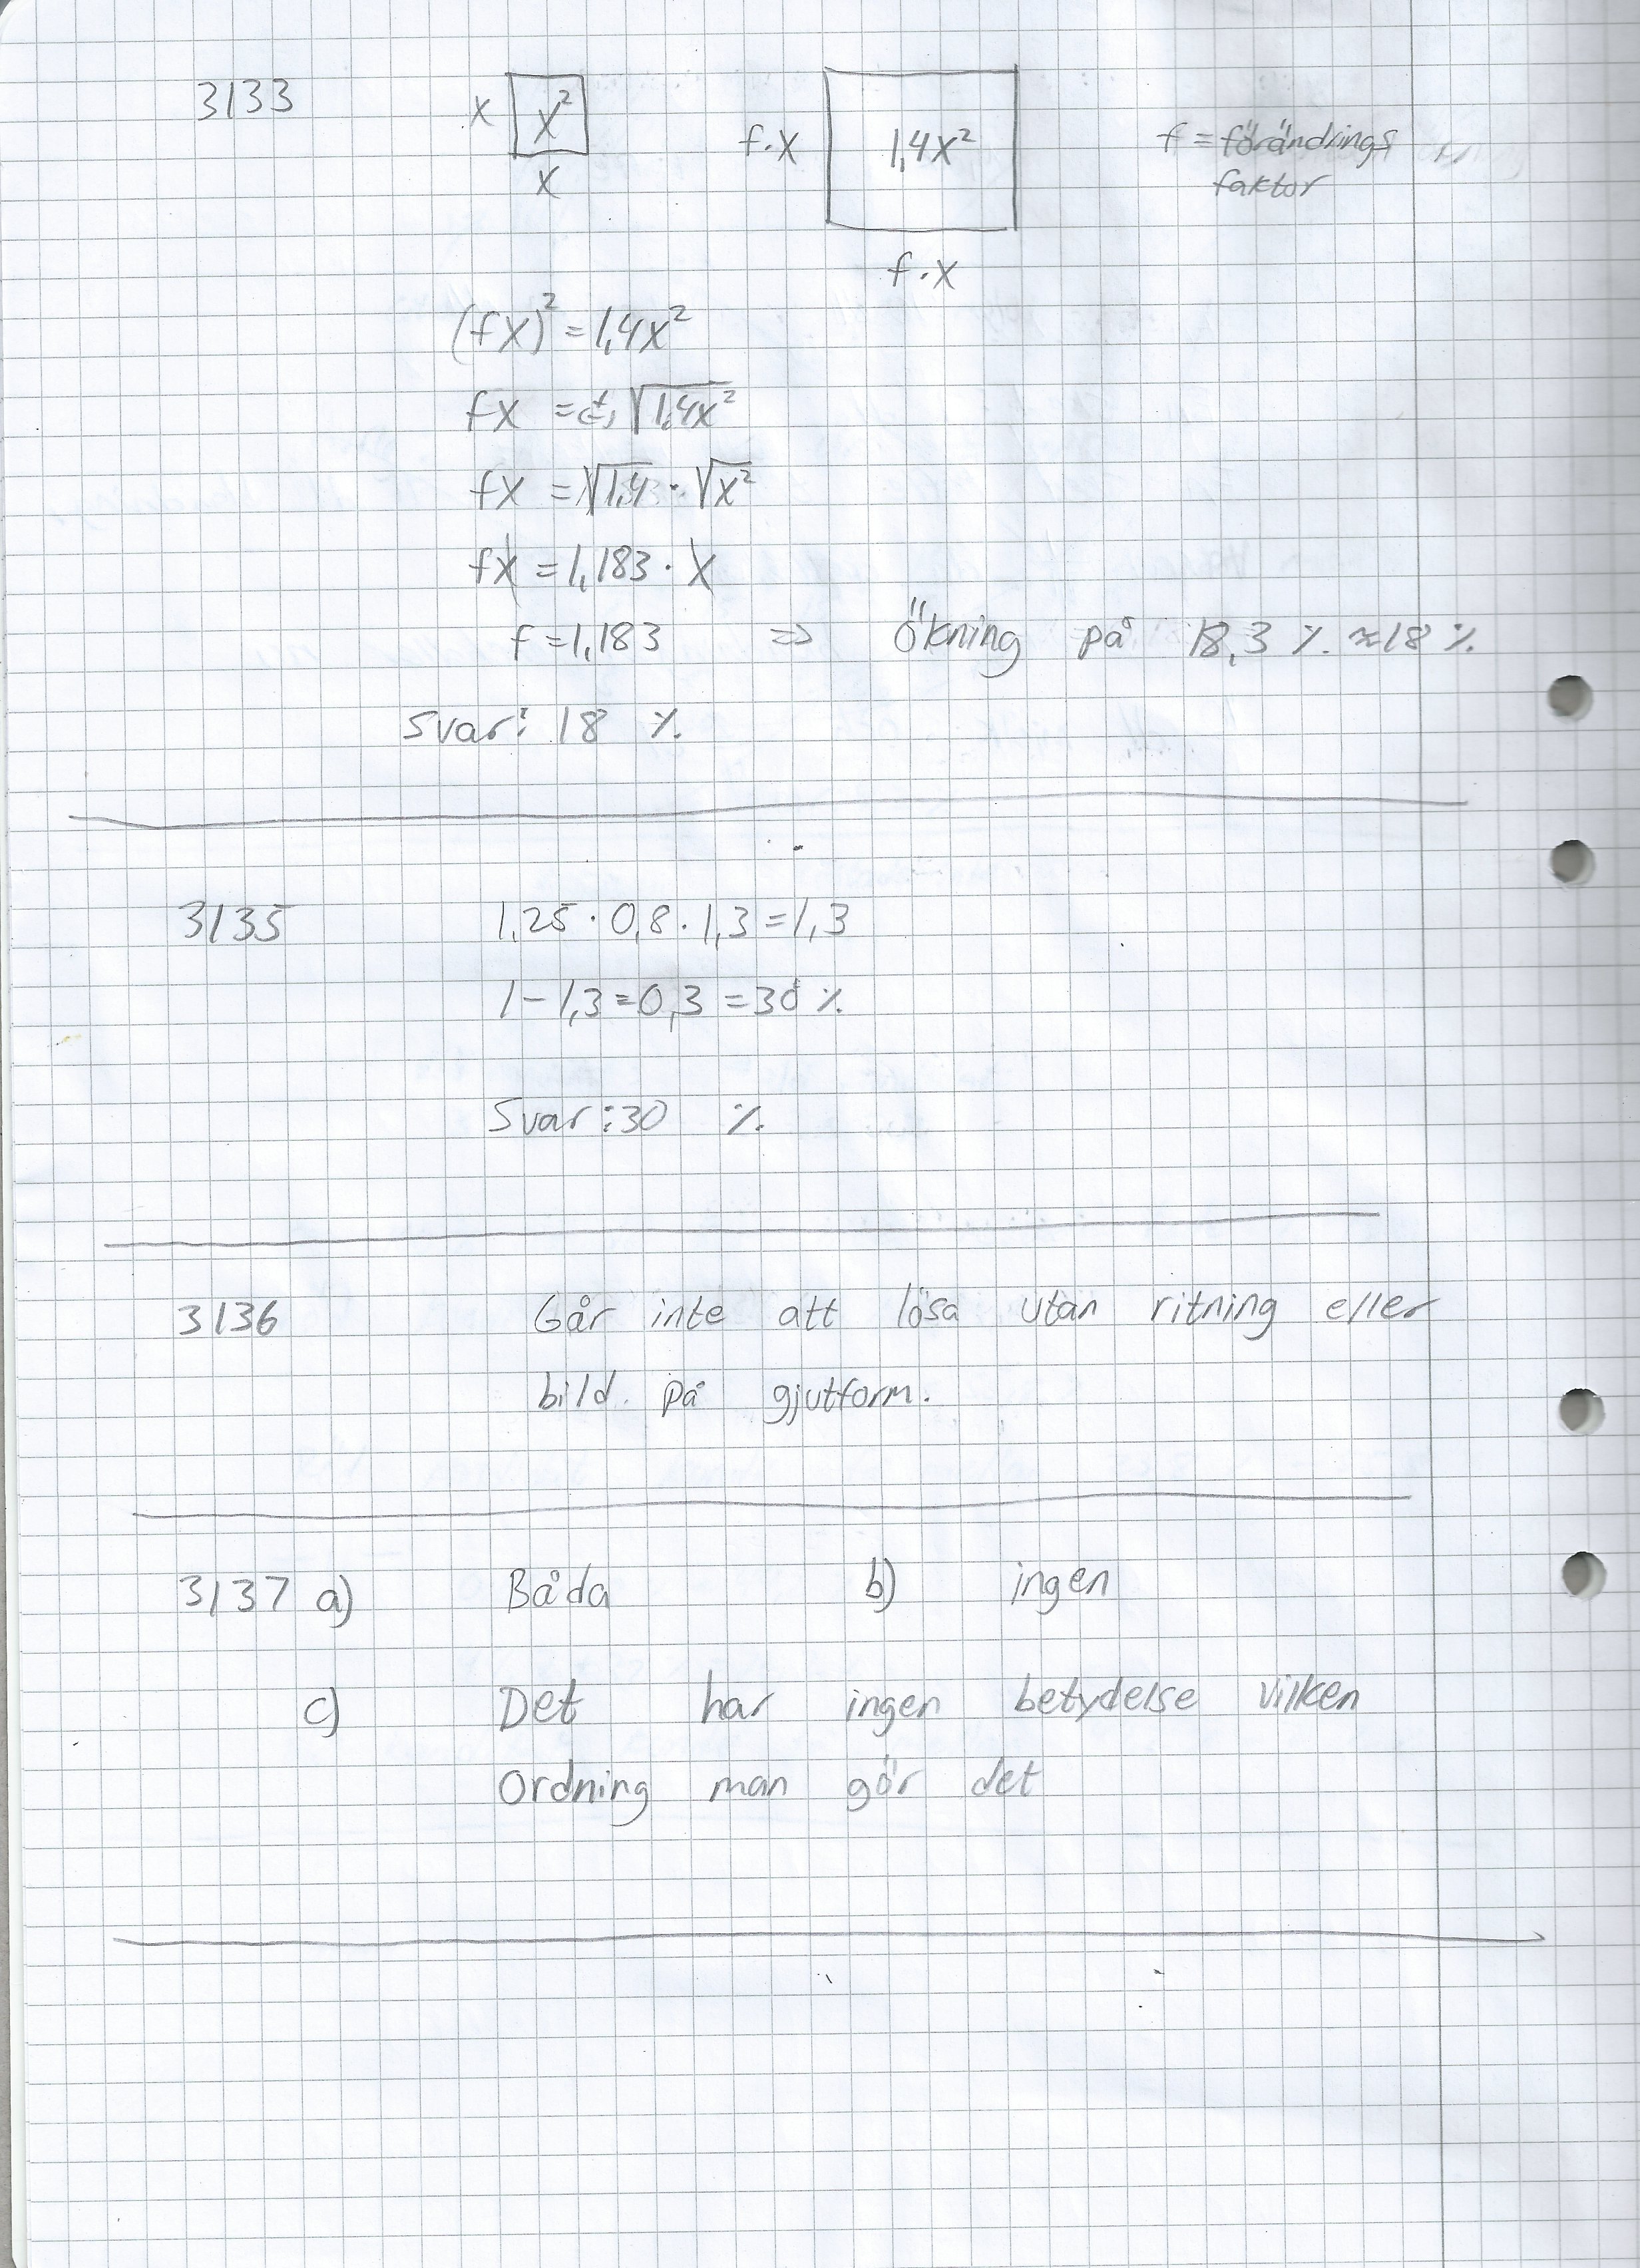 3133 x x² x f·x 1,4x² f·x f = förändrings
faktor
(fx)² = 1,4x²
fx = (±) √1,4x²
fx = √1,4 · √x²
fx = 1,183 · x
f = 1,183 => ökning på 18,3 % ≈ 18 %
Svar: 18 %
3135 1,25 · 0,8 · 1,3 = 1,3
1 - 1,3 = 0,3 = 30 %
Svar: 30 %
3136 Går inte att lösa utan ritning eller
bild på gjutform.
3137 a) Båda b) ingen
c) Det har ingen betydelse vilken
ordning man gör det